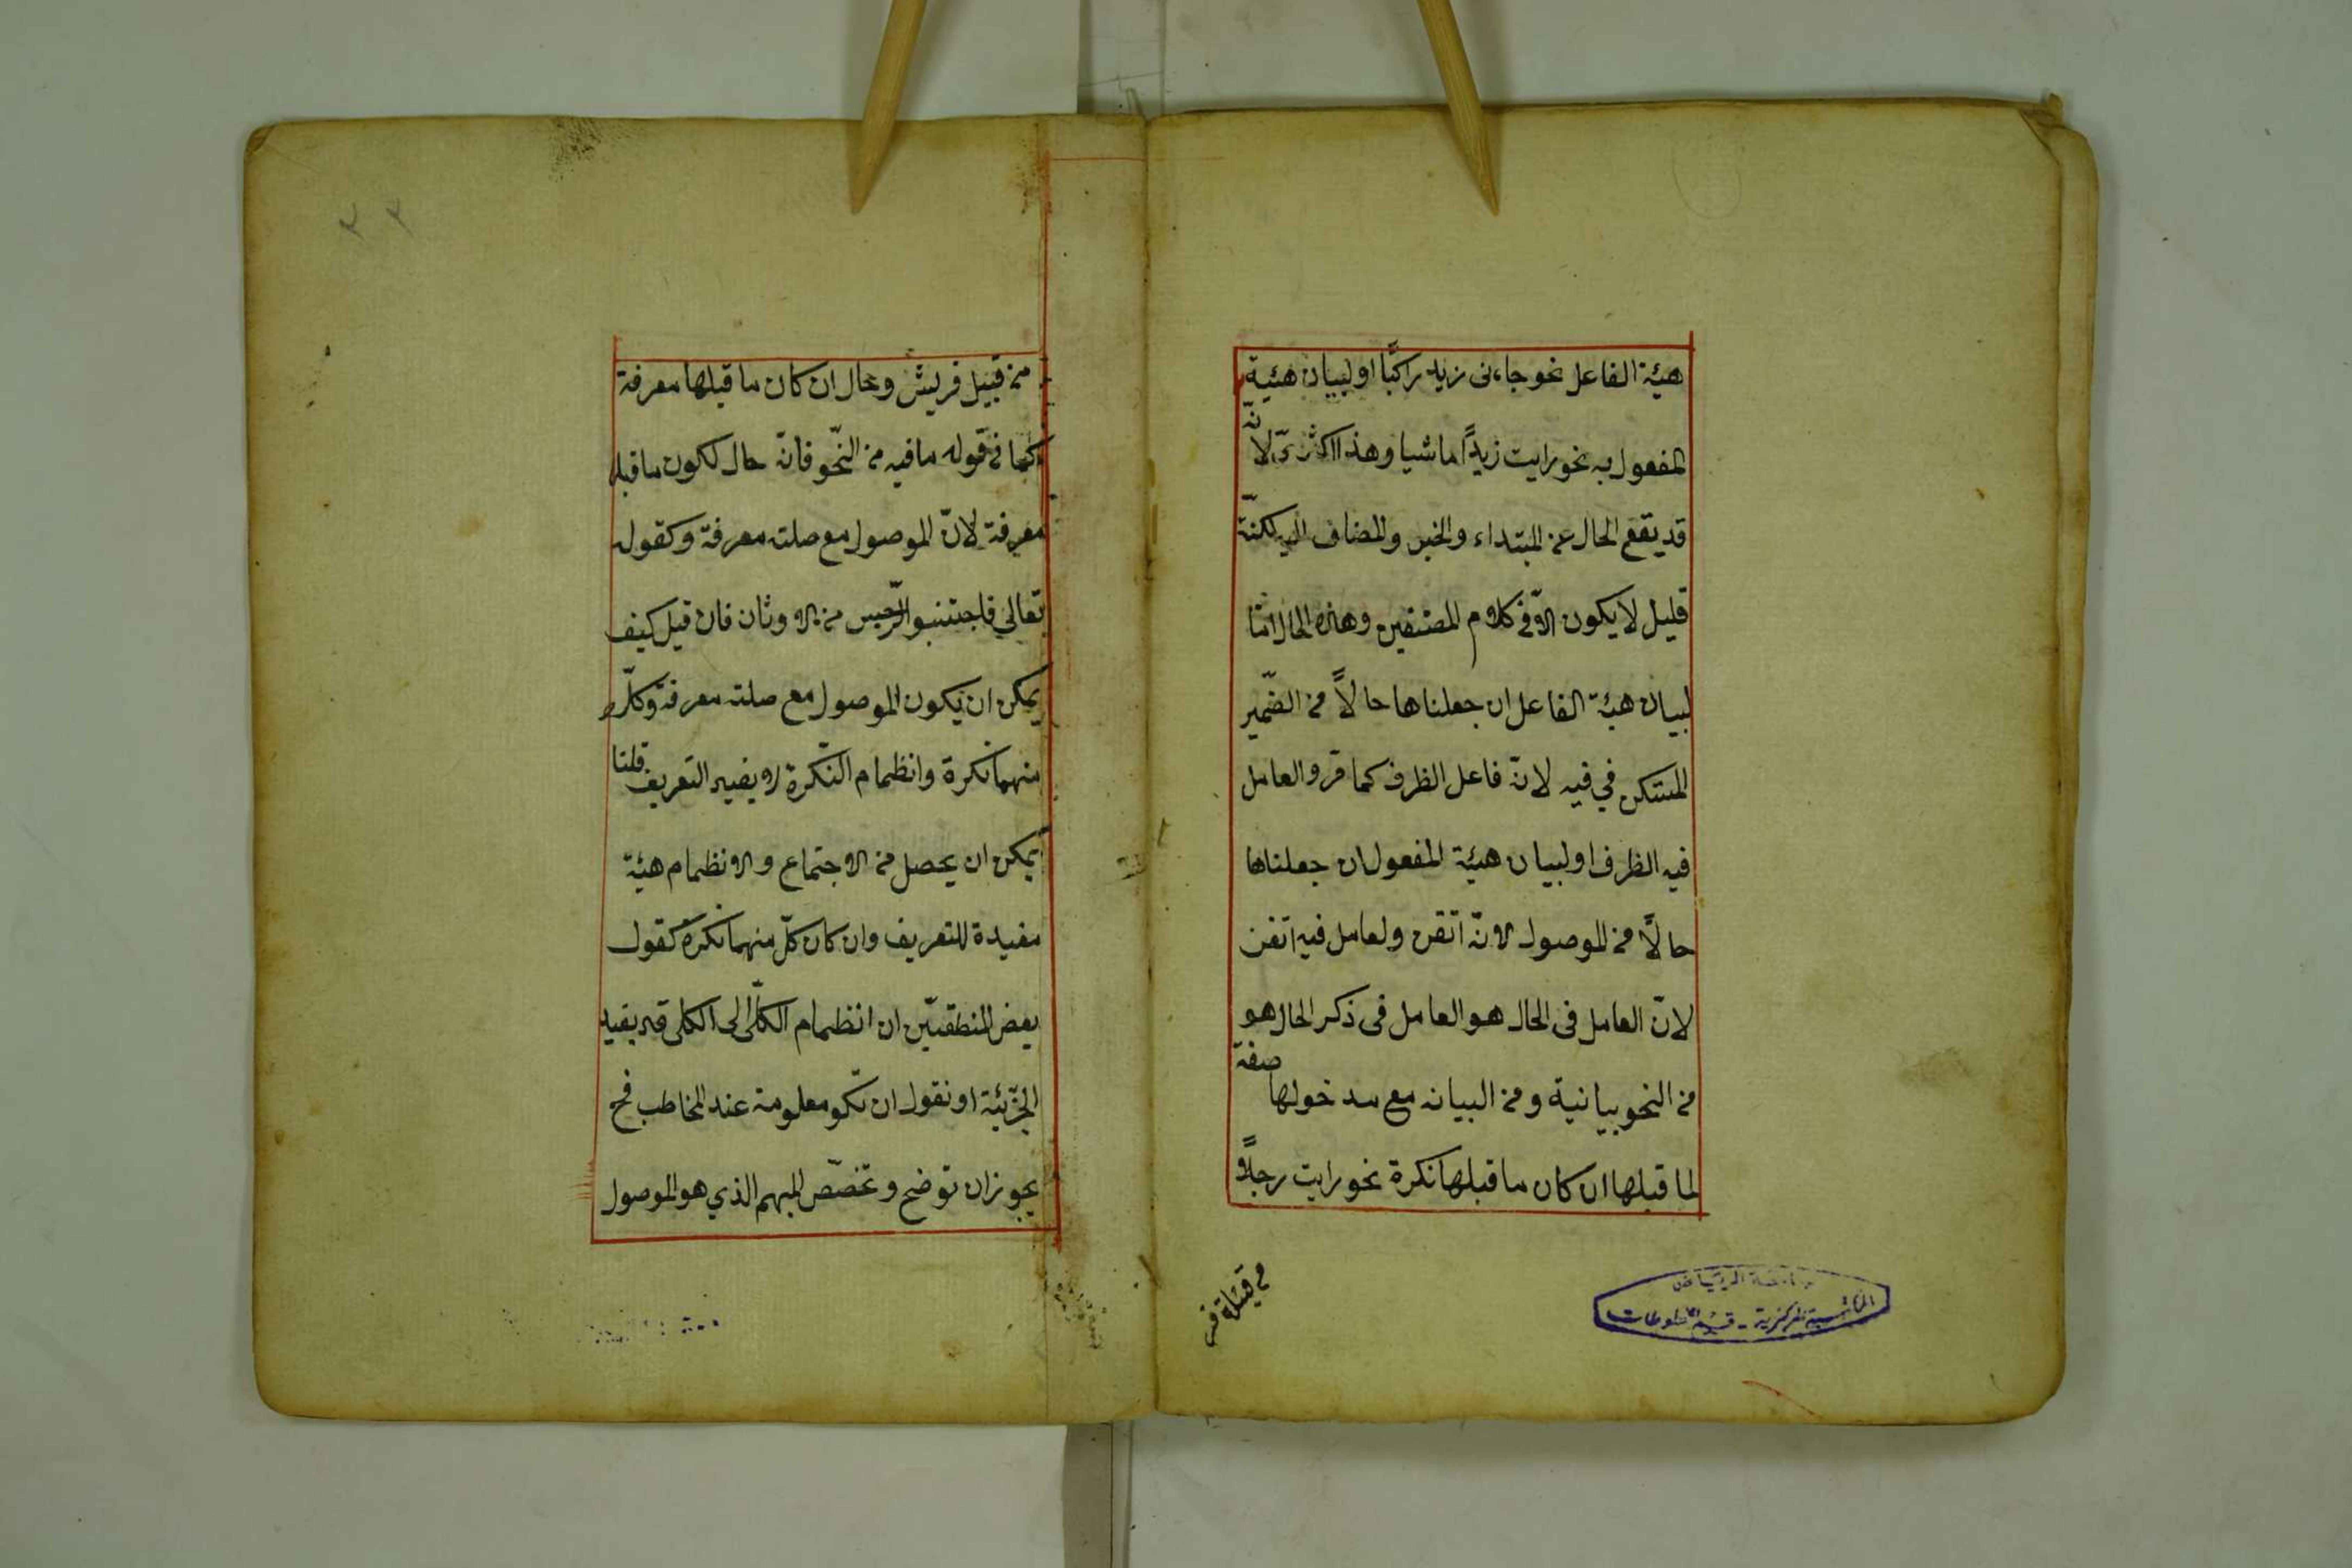 هيئة الفاعل نحو جاءنى زيد راكبًا او لبيان هيئية
المفعول به نحو رايت زيدًا ماشيا وهذا اكثرىّ لانّه
قد يقع الحال عن المبتداء والخبر والمضاف اليه لكنّه
قليل لا يكون الّا فى كلام المصنفين وهذه الحال امّا
لبيان هيئة الفاعل ان جعلناها حالاً من الضّمير
المستكن في فيه لانّ فاعل الظرف كما قر والعامل
فيه الظرف او لبيان هيئة المفعول ان جعلناها
حالاً من الموصول لانّه اتقن ولعامل فيه اتقن
لانّ العامل فى الحال هو العامل فى ذكر الحال هو
من النحو بيانية ومن البيانه مع مدخولها صفة
لما قبلها ان كان ما قبلها نكرة نحو رايت رجلاً
من قبيلة
جامعة الرياض
المكتبة المركزية - قسم المخطوطات
من قبيل قريش وحال ان كان ما قبلها معرفة
كما فى قوله ما فيه من النّحو فانّه حال لكون ما قبله
معرفة لانّ الموصول مع صلته معرفة وكقوله
تعالى فاجتنبوا الرّجس من الاوثان فان قيل كيف
يمكن ان يكون الموصول مع صلته معرفة وكلّ
منهما نكرة وانظمام النّكرة لا يفيد التعريف قلنا
يمكن ان يحصل من الاجتماع والانظمام هيئة
مفيدة للتعريف وان كان كلّ منهما نكرة كقول
بعض المنطقيّين ان انظمام الكلّى الى الكلى قد يفيد
الجزئية او نقول ان تكو معلومة عند المخاطب فح
يجوز ان توضح وتخصّص المبهم الذي هو الموصول